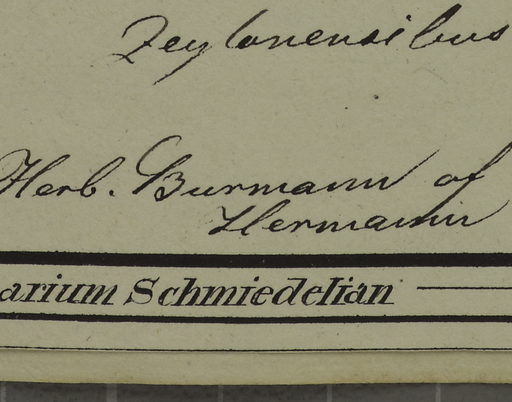 Zeylonensibus
Herb. Burmann of
Hermann
arium Schmiedelian